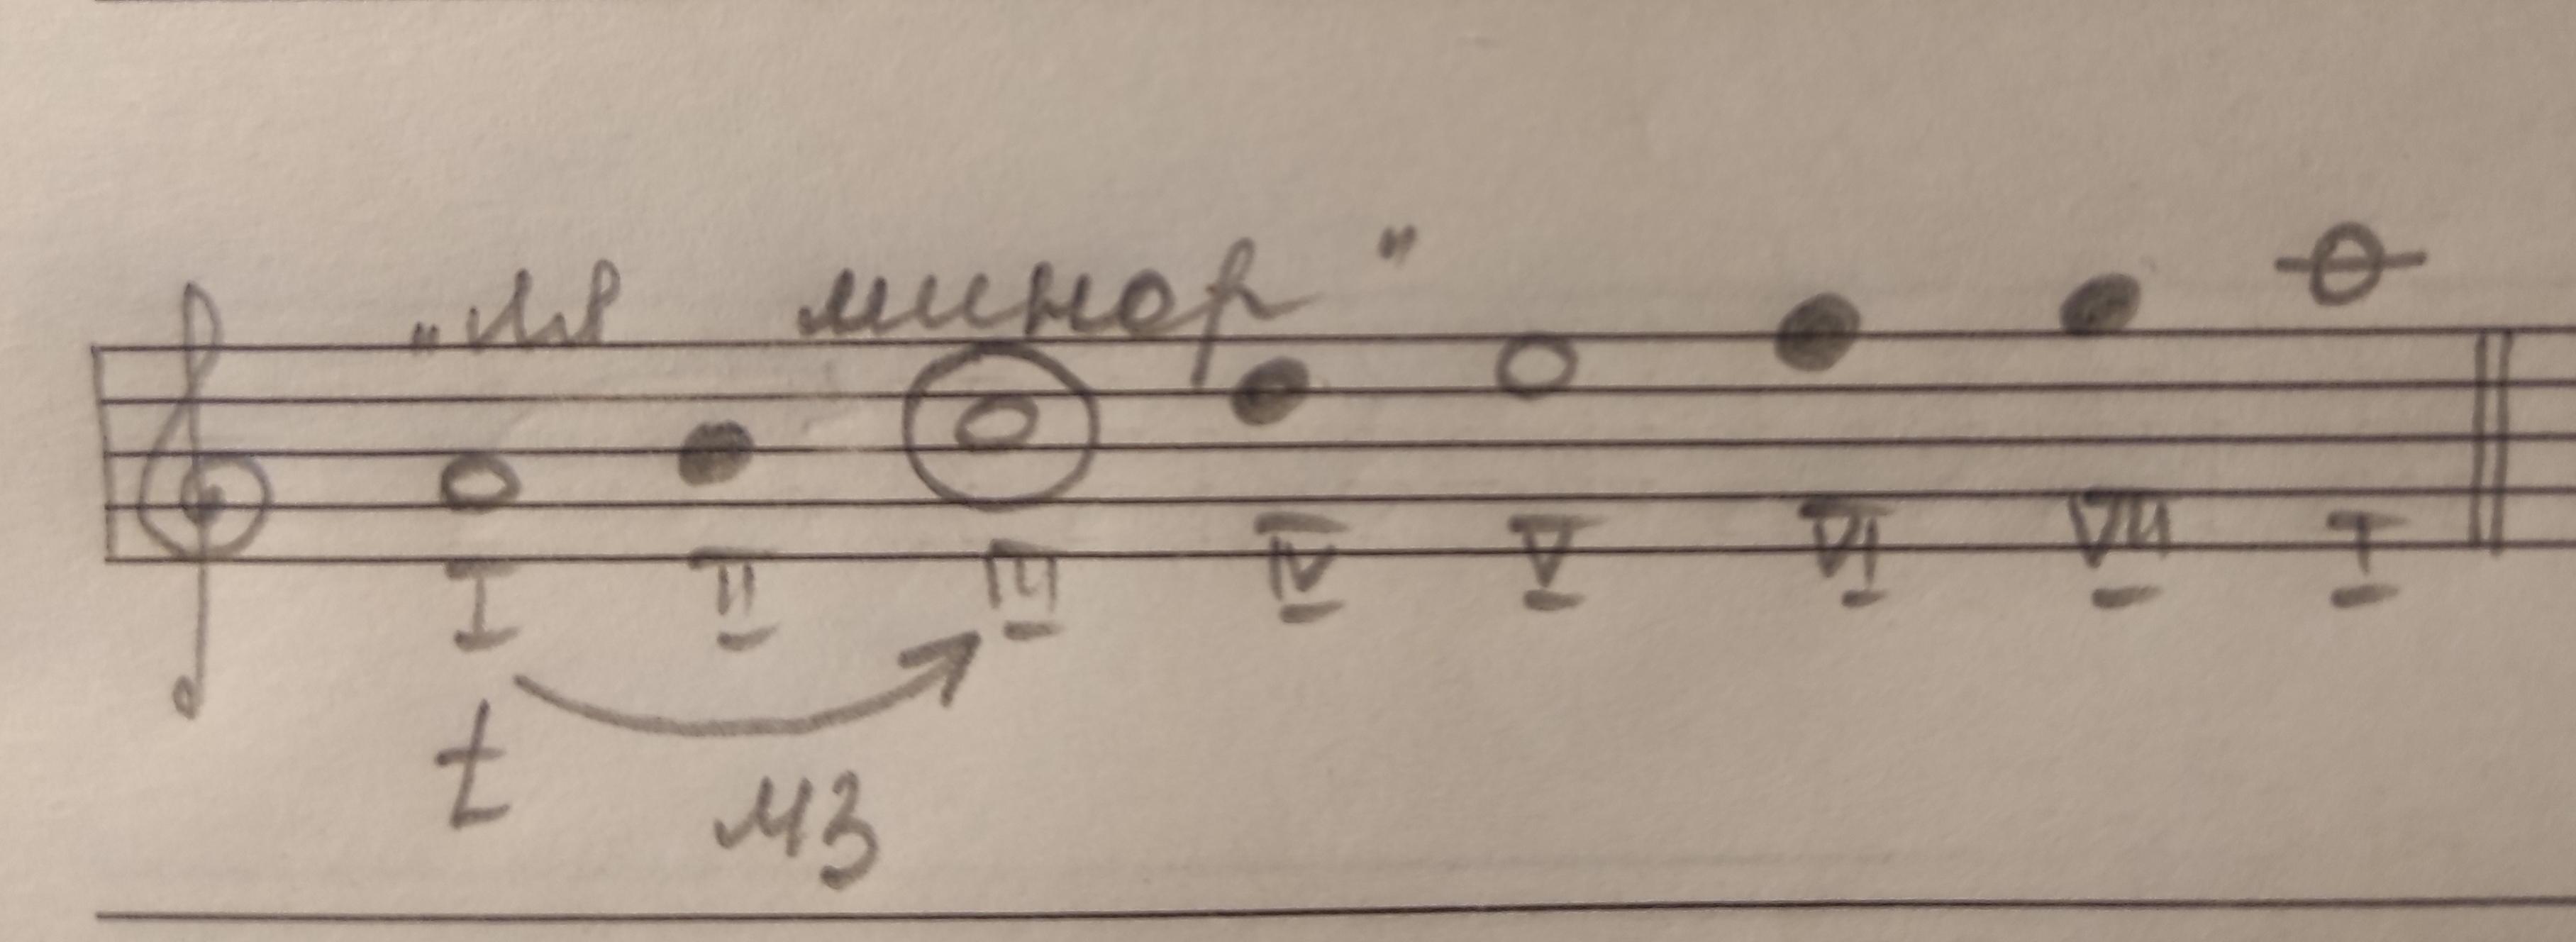 „ля минор"
I II III IV V VI VII I
t м3